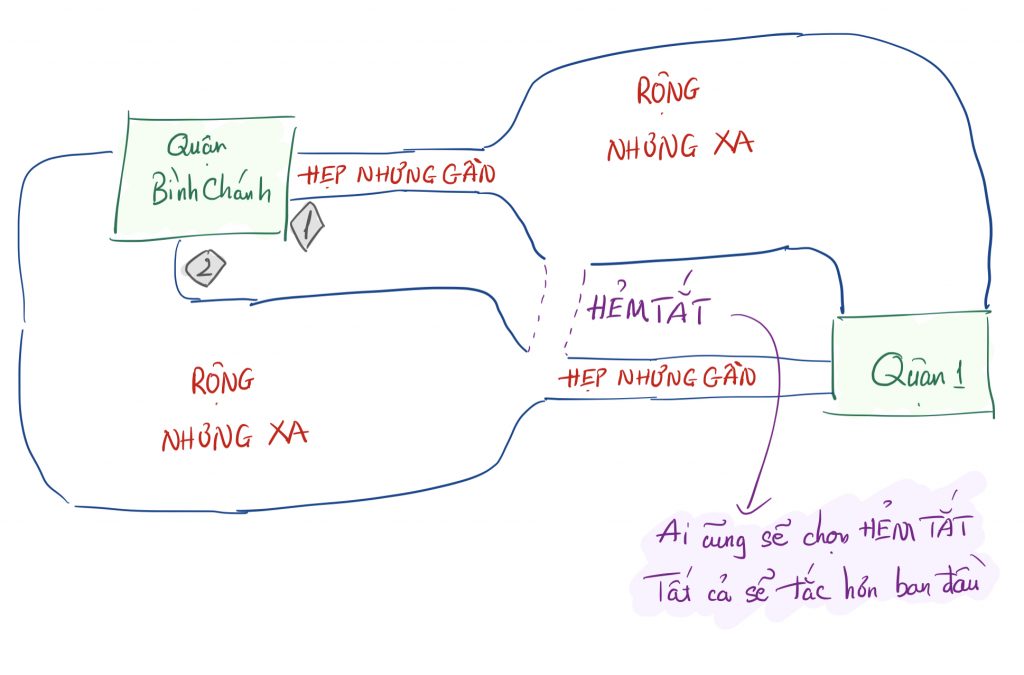 RỘNG
NHƯNG XA
Quận
Bình Chánh
HẸP NHƯNG GẦN
1
2
HẺM TẮT
RỘNG
NHƯNG XA
HẸP NHƯNG GẦN
Quận 1
Ai cũng sẽ chọn HẺM TẮT
Tất cả sẽ tắc hơn ban đầu